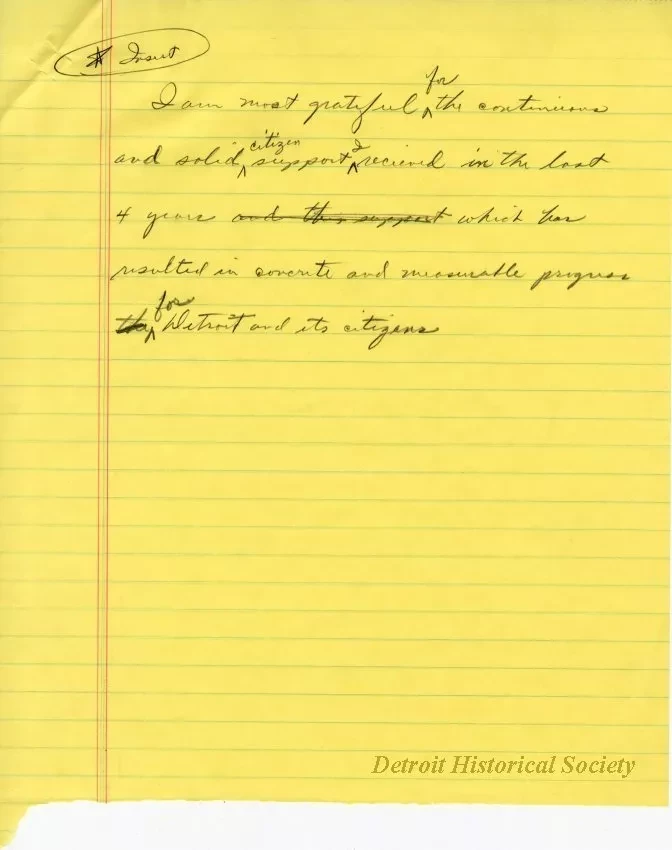 * Insert
I am most grateful for the continuous
and solid citizen support I recieved in the last
4 years and this support which has
resulted in concrete and measurable progress
the for Detroit and its citizens
Detroit Historical Society